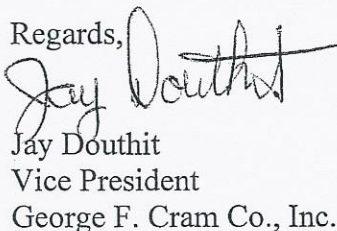 Regards,
Jay Douthit
Jay Douthit
Vice President
George F. Cram Co., Inc.